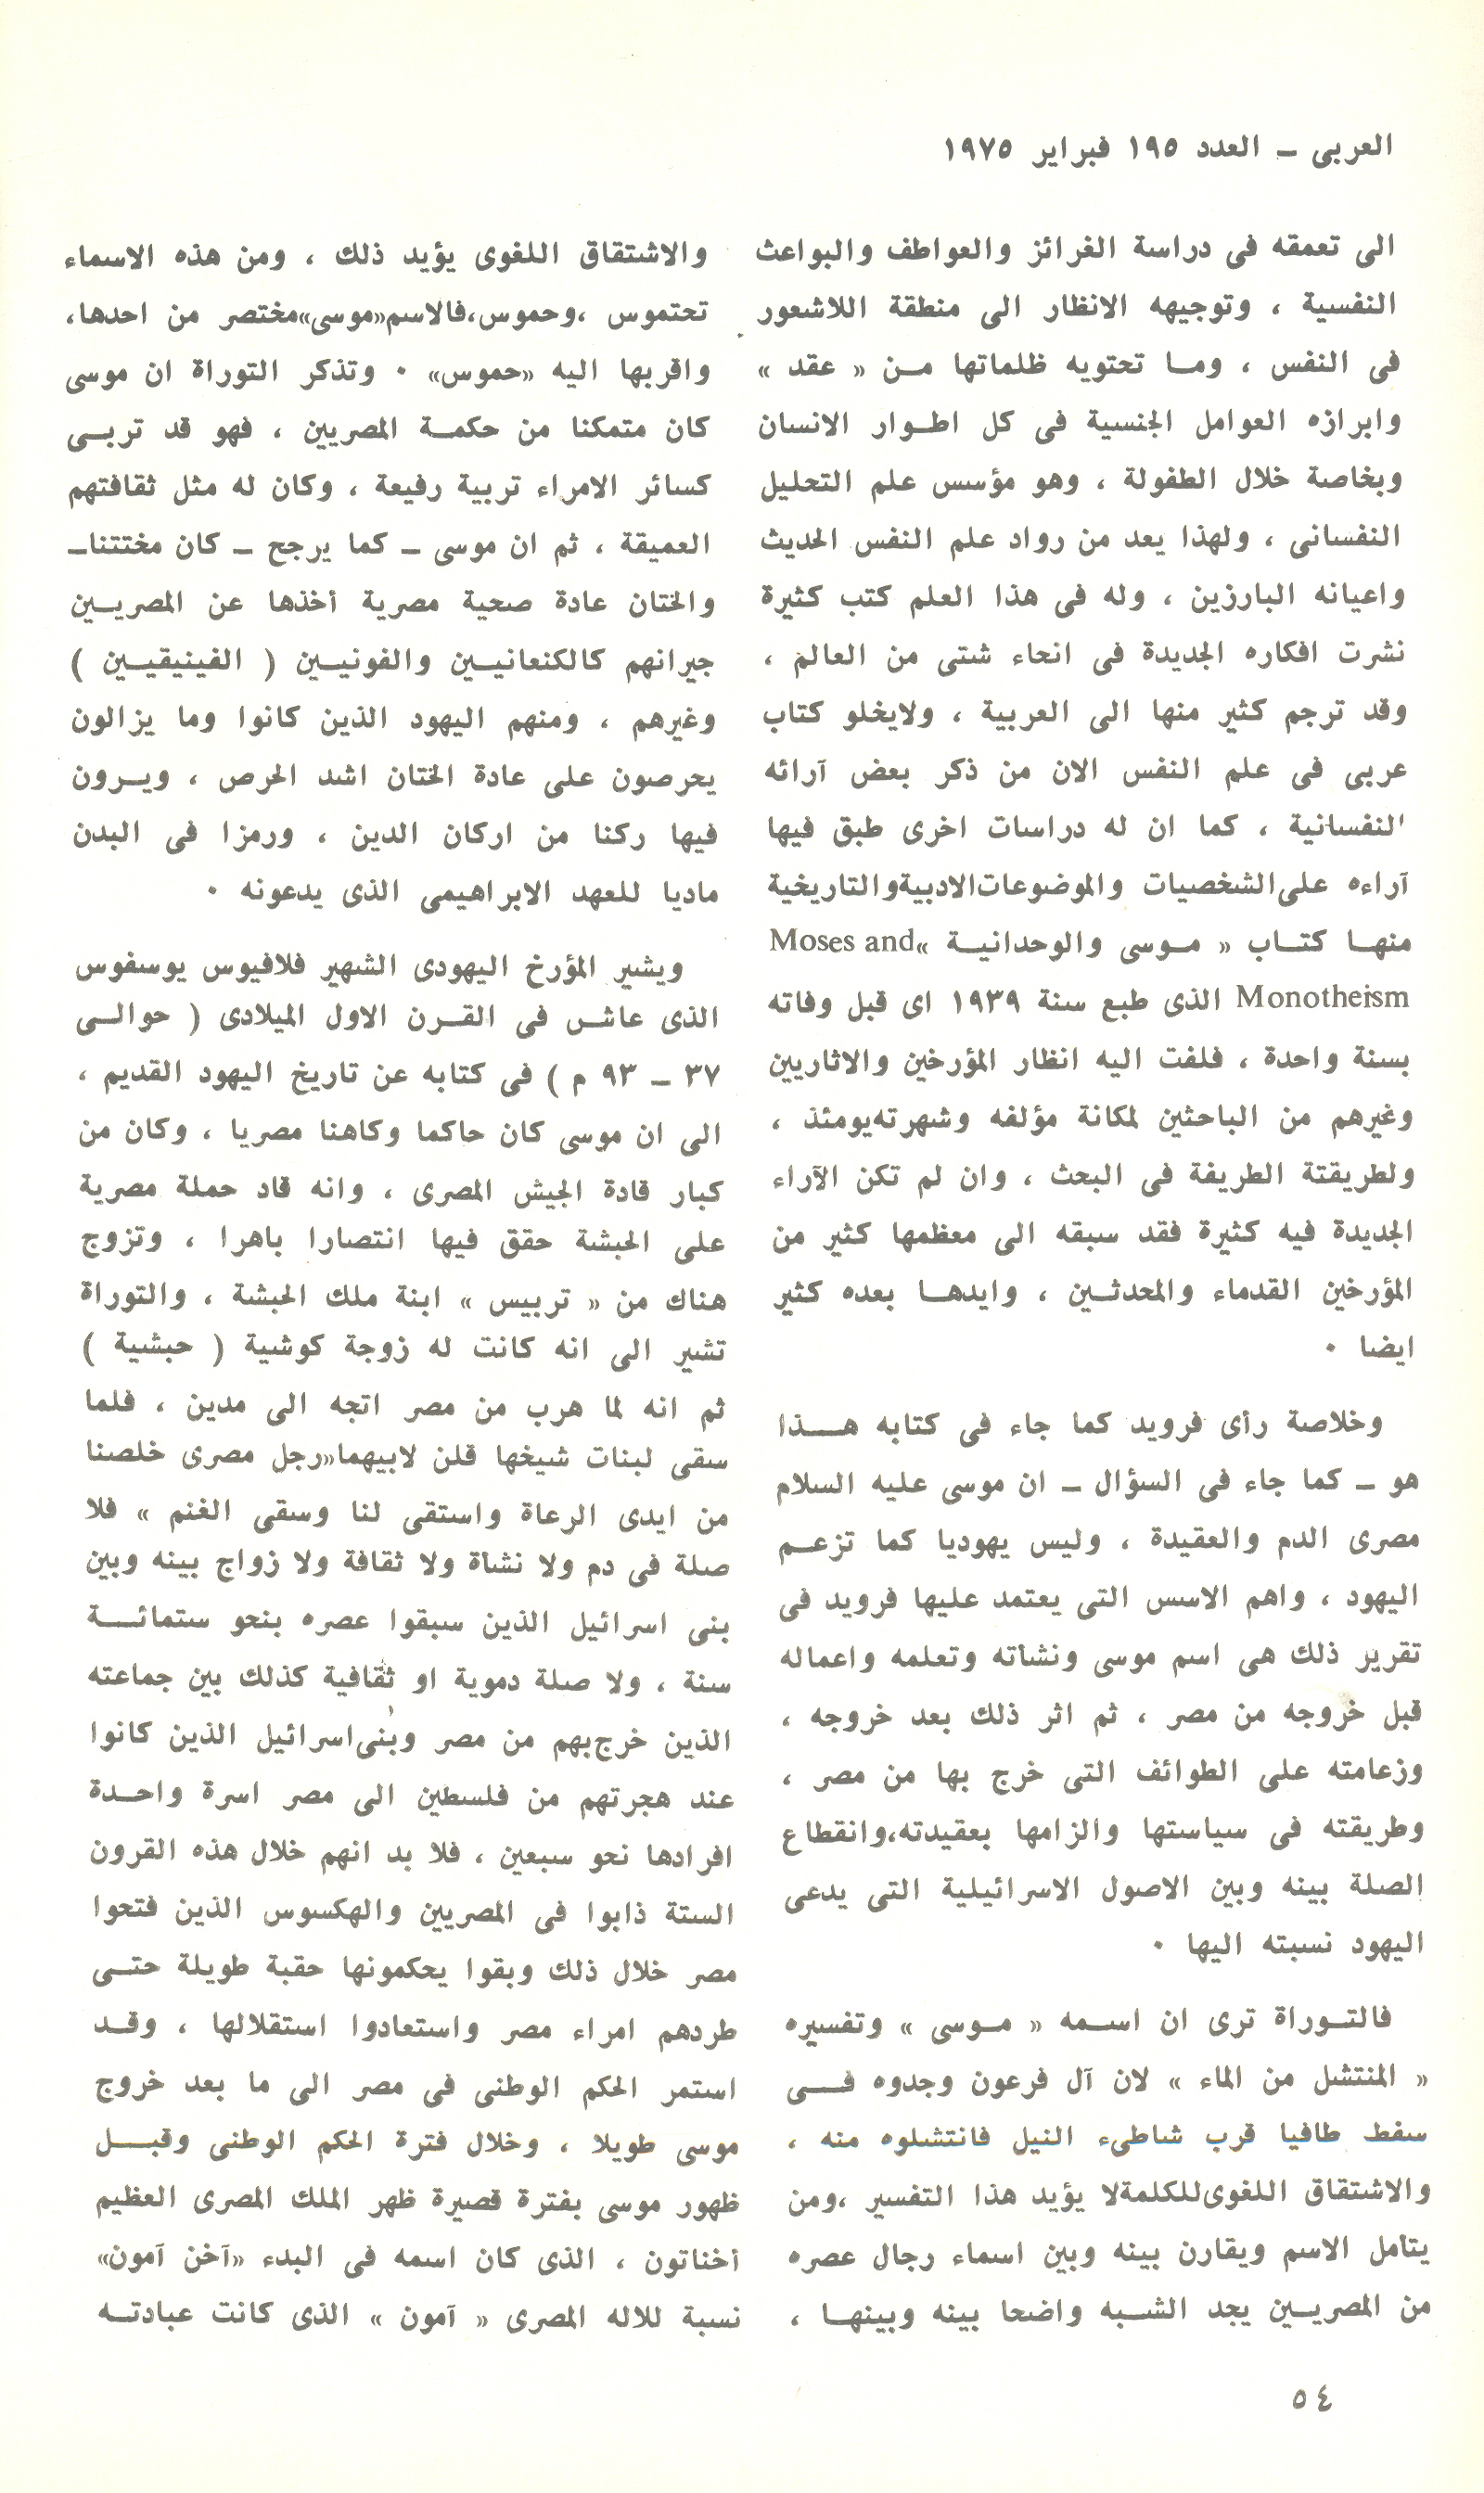 العربى ـ العدد ١٩٥ فبراير ١٩٧٥
الى تعمقه فى دراسة الغرائز والعواطف والبواعث
النفسية ، وتوجيهه الانظار الى منطقة اللاشعور
فى النفس ، وما تحتويه ظلماتها من « عقد »
وابرازه العوامل الجنسية فى كل اطوار الانسان
وبخاصة خلال الطفولة ، وهو مؤسس علم التحليل
النفسانى ، ولهذا يعد من رواد علم النفس الحديث
واعيانه البارزين ، وله فى هذا العلم كتب كثيرة
نشرت افكاره الجديدة فى انحاء شتى من العالم ،
وقد ترجم كثير منها الى العربية ، ولايخلو كتاب
عربى فى علم النفس الان من ذكر بعض آرائه
النفسانية ، كما ان له دراسات اخرى طبق فيها
آراءه على الشخصيات والموضوعات الادبية والتاريخية
منها كتاب « موسى والوحدانية » Moses and
Monotheism الذى طبع سنة ١٩٣٩ اى قبل وفاته
بسنة واحدة ، فلفت اليه انظار المؤرخين والاثاريين
وغيرهم من الباحثين لمكانة مؤلفه وشهرته يومئذ ،
ولطريقتة الطريفة فى البحث ، وان لم تكن الآراء
الجديدة فيه كثيرة فقد سبقه الى معظمها كثير من
المؤرخين القدماء والمحدثين ، وايدها بعده كثير
ايضا ٠
وخلاصة رأى فرويد كما جاء فى كتابه هذا
هو ـ كما جاء فى السؤال ـ ان موسى عليه السلام
مصرى الدم والعقيدة ، وليس يهوديا كما تزعم
اليهود ، واهم الاسس التى يعتمد عليها فرويد فى
تقرير ذلك هى اسم موسى ونشأته وتعلمه واعماله
قبل خروجه من مصر ، ثم اثر ذلك بعد خروجه ،
وزعامته على الطوائف التى خرج بها من مصر ،
وطريقته فى سياستها والزامها بعقيدته، وانقطاع
الصلة بينه وبين الاصول الاسرائيلية التى يدعى
اليهود نسبته اليها ٠
فالتوراة ترى ان اسمه « موسى » وتفسيره
« المنتشل من الماء » لان آل فرعون وجدوه فى
سفط طافيا قرب شاطىء النيل فانتشلوه منه ،
والاشتقاق اللغوى للكلمة لا يؤيد هذا التفسير ، ومن
يتامل الاسم ويقارن بينه وبين اسماء رجال عصره
من المصريين يجد الشبه واضحا بينه وبينها ،
والاشتقاق اللغوى يؤيد ذلك ، ومن هذه الاسماء
تحتموس ، وحموس، فالاسم «موسى» مختصر من احدها،
واقربها اليه «حموس» ٠ وتذكر التوراة ان موسى
كان متمكنا من حكمة المصريين ، فهو قد تربى
كسائر الامراء تربية رفيعة ، وكان له مثل ثقافتهم
العميقة ، ثم ان موسى ـ كما يرجح ـ كان مختتناـ
والختان عادة صحية مصرية أخذها عن المصريين
جيرانهم كالكنعانيين والفونيين ( الفينيقيين )
وغيرهم ، ومنهم اليهود الذين كانوا وما يزالون
يحرصون على عادة الختان اشد الحرص ، ويرون
فيها ركنا من اركان الدين ، ورمزا فى البدن
ماديا للعهد الابراهيمى الذى يدعونه ٠
ويشير المؤرخ اليهودى الشهير فلافيوس يوسفوس
الذى عاش فى القرن الاول الميلادى ( حوالى
٣٧ ـ ٩٣ م ) فى كتابه عن تاريخ اليهود القديم ،
الى ان موسى كان حاكما وكاهنا مصريا ، وكان من
كبار قادة الجيش المصرى ، وانه قاد حملة مصرية
على الحبشة حقق فيها انتصارا باهرا ، وتزوج
هناك من « تربيس » ابنة ملك الحبشة ، والتوراة
تشير الى انه كانت له زوجة كوشية ( حبشية )
ثم انه لما هرب من مصر اتجه الى مدين ، فلما
سقى لبنات شيخها قلن لابيهما «رجل مصرى خلصنا
من ايدى الرعاة واستقى لنا وسقى الغنم » فلا
صلة فى دم ولا نشأة ولا ثقافة ولا زواج بينه وبين
بنى اسرائيل الذين سبقوا عصره بنحو ستمائة
سنة ، ولا صلة دموية او ثقافية كذلك بين جماعته
الذين خرج بهم من مصر وبنى اسرائيل الذين كانوا
عند هجرتهم من فلسطين الى مصر اسرة واحدة
افرادها نحو سبعين ، فلا بد انهم خلال هذه القرون
الستة ذابوا فى المصريين والهكسوس الذين فتحوا
مصر خلال ذلك وبقوا يحكمونها حقبة طويلة حتى
طردهم امراء مصر واستعادوا استقلالها ، وقد
استمر الحكم الوطنى فى مصر الى ما بعد خروج
موسى طويلا ، وخلال فترة الحكم الوطنى وقبل
ظهور موسى بفترة قصيرة ظهر الملك المصرى العظيم
أخناتون ، الذى كان اسمه فى البدء «آخن آمون»
نسبة للاله المصرى « آمون » الذى كانت عبادته
٥٤